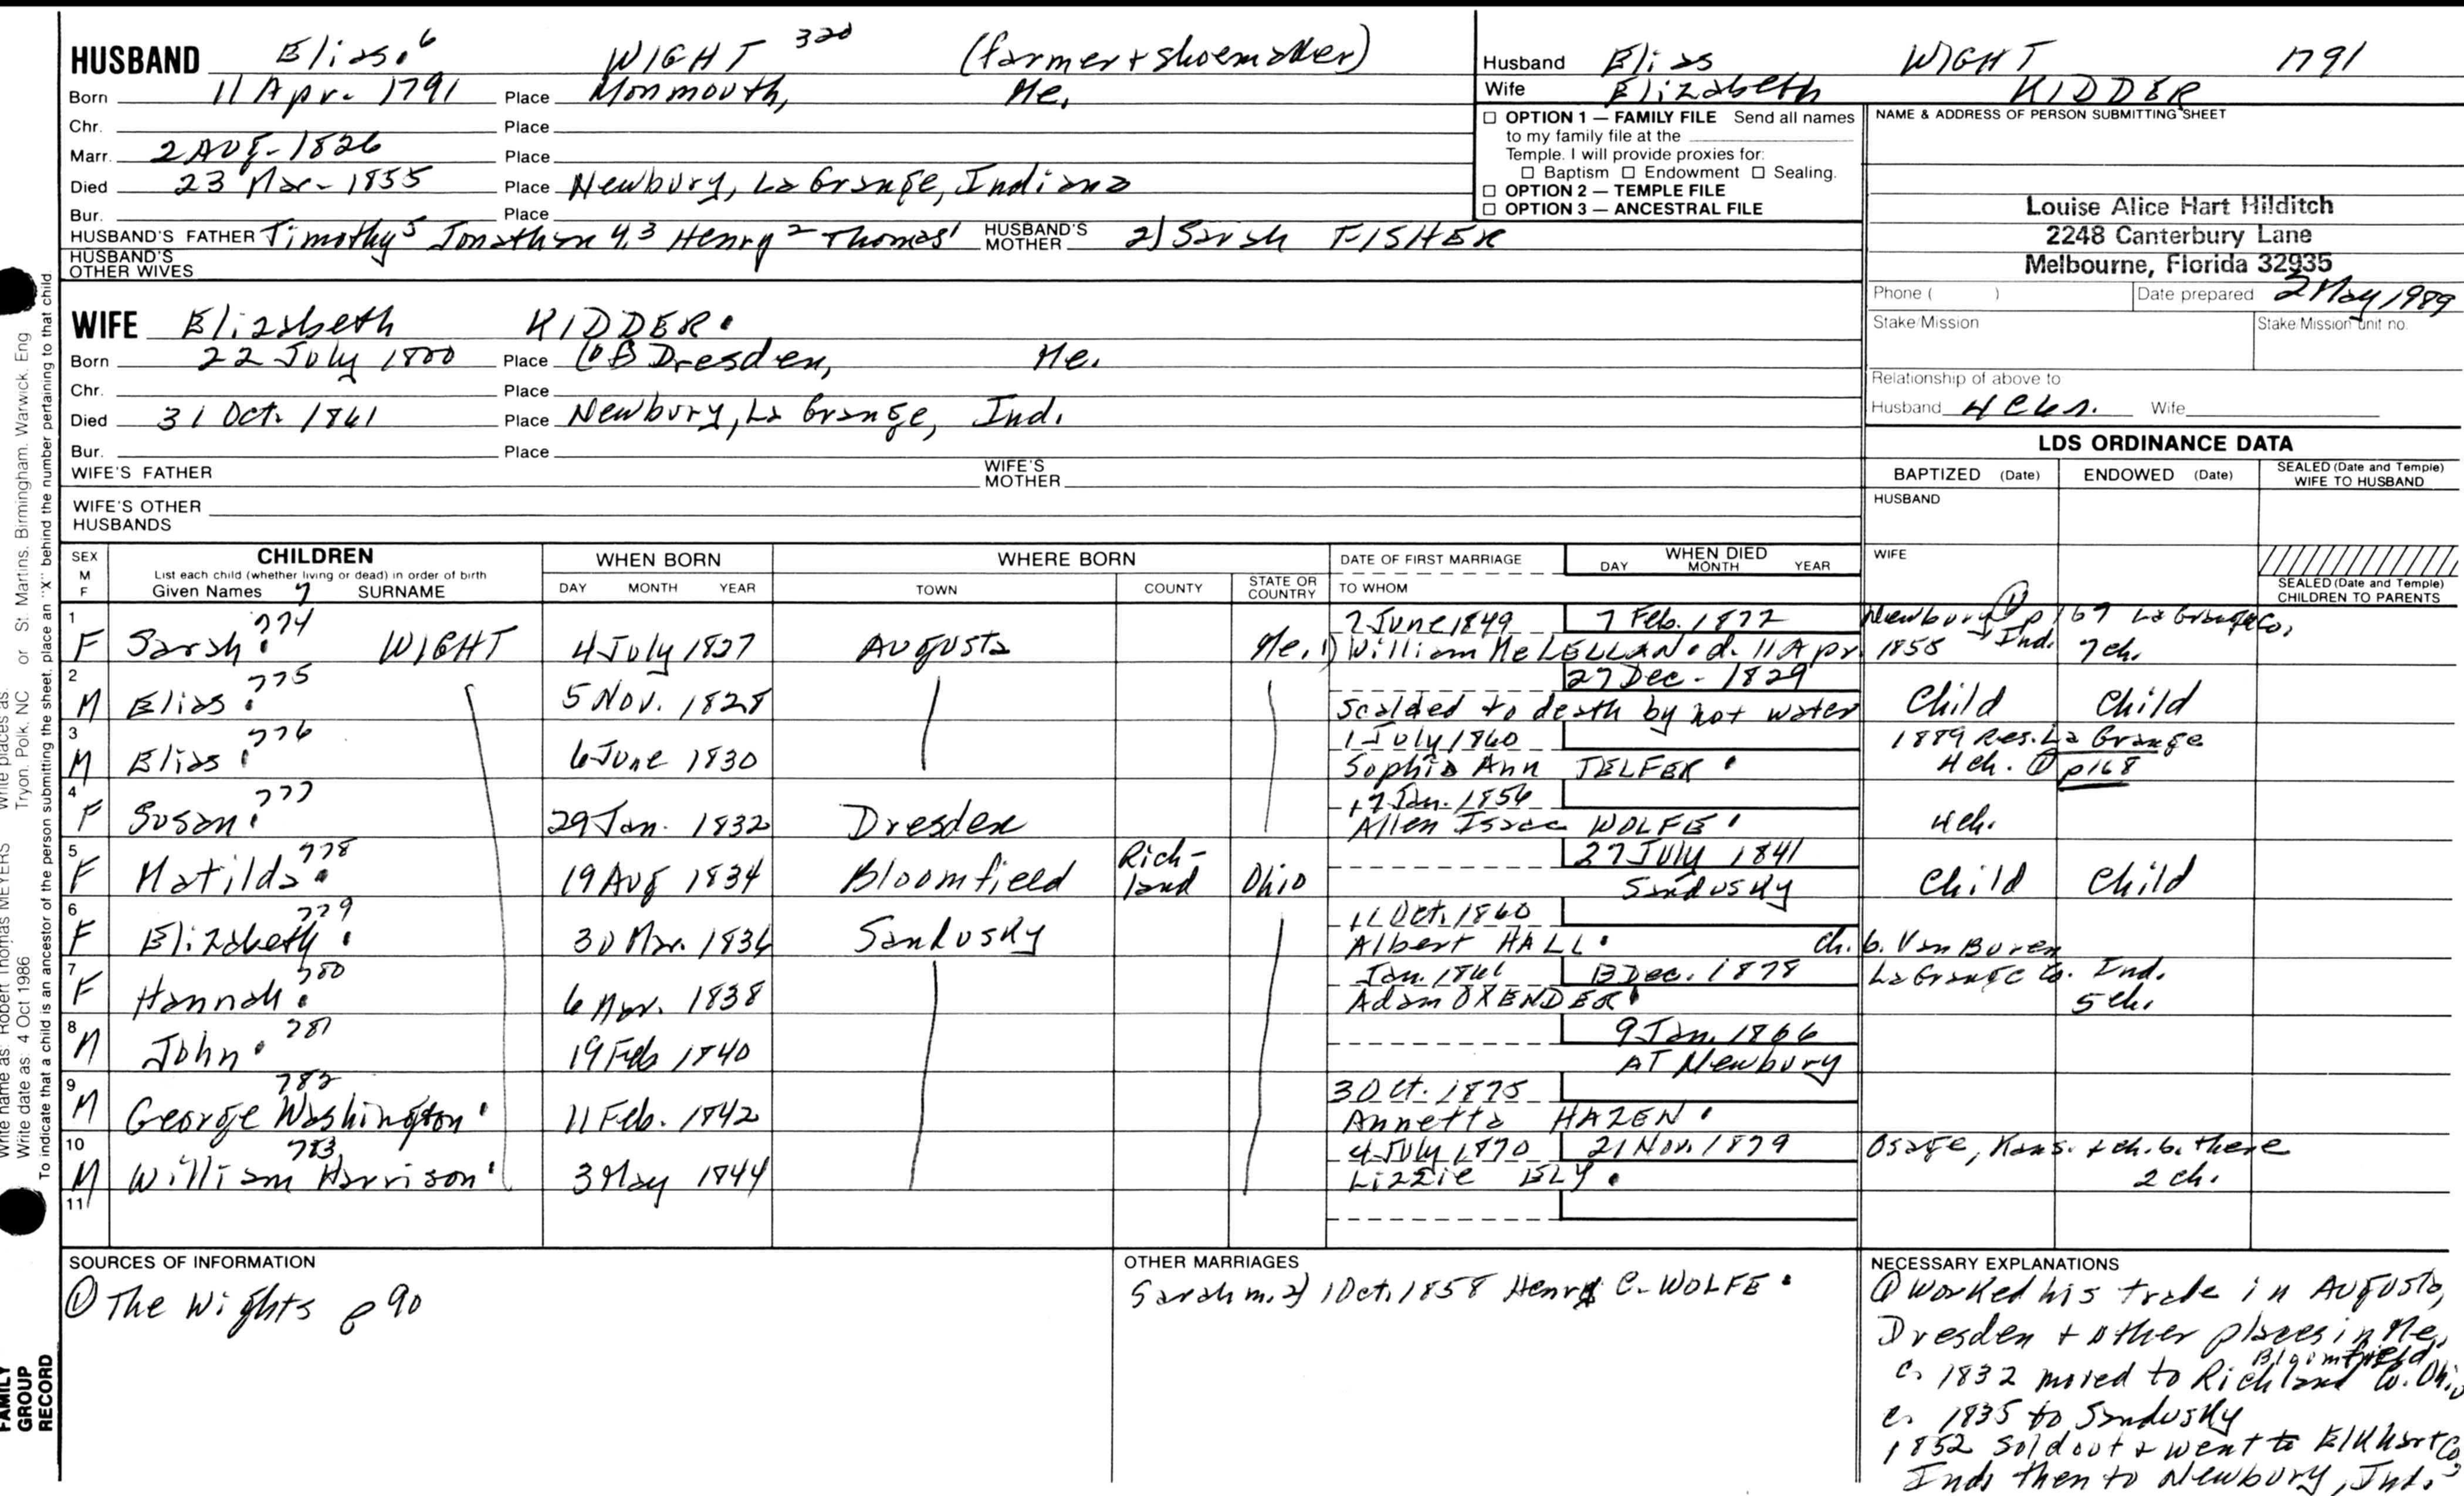 HUSBAND Elias.6 WIGHT 320 (farmer + shoemaker)
Born 11 Apr. 1791 Place Monmouth, Me.
Chr. Place
Marr. 2 Aug. 1826 Place
Died 23 Mar. 1855 Place Newbury, La Grange, Indiana
Bur. Place
HUSBAND'S FATHER Timothy5 Jonathan 4,3 Henry2 Thomas1 HUSBAND'S MOTHER 2) Sarah FISHER
HUSBAND'S OTHER WIVES
Husband Elias WIGHT 1791
Wife Elizabeth KIDDER
☐ OPTION 1 — FAMILY FILE Send all names
to my family file at the
Temple. I will provide proxies for:
☐ Baptism ☐ Endowment ☐ Sealing.
☐ OPTION 2 — TEMPLE FILE
☐ OPTION 3 — ANCESTRAL FILE
NAME & ADDRESS OF PERSON SUBMITTING SHEET
Louise Alice Hart Hilditch
2248 Canterbury Lane
Melbourne, Florida 32935
Phone ( ) Date prepared 2 May 1989
Stake/Mission Stake/Mission unit no.
Relationship of above to
Husband 4 C6n. Wife
WIFE Elizabeth KIDDER.
Born 22 July 1800 Place Dresden, Me.
Chr. Place
Died 31 Oct. 1861 Place Newbury, La Grange, Ind.
Bur. Place
WIFE'S FATHER WIFE'S MOTHER
WIFE'S OTHER HUSBANDS
LDS ORDINANCE DATA
BAPTIZED (Date) ENDOWED (Date) SEALED (Date and Temple) WIFE TO HUSBAND
HUSBAND
WIFE
SEALED (Date and Temple) CHILDREN TO PARENTS
SEX M F
CHILDREN
List each child (whether living or dead) in order of birth
Given Names 7 SURNAME
WHEN BORN
DAY MONTH YEAR
WHERE BORN
TOWN COUNTY STATE OR COUNTRY
DATE OF FIRST MARRIAGE
TO WHOM
WHEN DIED
DAY MONTH YEAR
1 F Sarah. 774 WIGHT 4 July 1827 Augusta Me. 7 June 1849 7 Feb. 1877 Newbury p 167 La Grange Co.,
1) William McLELLAN. d. 11 Apr. 1858 Ind. 7 ch.
2 M Elias. 775 5 Nov. 1828 27 Dec. 1829
scalded to death by hot water Child Child
3 M Elias. 776 6 June 1830 1 July 1860 1889 Res. La Grange
Sophia Ann TELFER. 4 ch. ① p168
4 F Susan. 777 29 Jan. 1832 Dresden 17 Jan. 1856
Allen Isaac WOLFE. 4 ch.
5 F Matilda. 778 19 Aug 1834 Bloomfield Rich-land Ohio 27 July 1841
Sandusky Child Child
6 F Elizabeth. 779 30 Mar. 1836 Sandusky 11 Oct. 1860
Albert HALL. ch. b. Van Buren
7 F Hannah. 780 6 Mar. 1838 Jan. 1861 13 Dec. 1878 La Grange Co. Ind.
Adam OXENDER. 5 ch.
8 M John. 781 19 Feb 1840 9 Jan. 1866
AT Newbury
9 M George Washington. 782 11 Feb. 1842 3 Oct. 1875
Annetta HAZEN.
10 M William Harrison. 783 3 May 1844 4 July 1870 21 Nov. 1879 Osage, Kans. + ch. b. there
Lizzie ELY. 2 ch.
11
SOURCES OF INFORMATION
① The Wights p 90
OTHER MARRIAGES
Sarah m. 2) 1 Oct. 1858 Henry C. WOLFE.
NECESSARY EXPLANATIONS
① Worked his trade in Augusta,
Dresden + other places in Me.
c. 1832 moved to Bloomfield Richland Co. Ohio
c. 1835 to Sandusky
1852 sold out + went to Elkhart Co,
Ind. then to Newbury, Ind.
or St. Martins, Birmingham, Warwick, Eng
Write places as: Tryon, Polk, NC
Write name as: Robert Thomas MEYERS
Write date as: 4 Oct 1986
To indicate that a child is an ancestor of the person submitting the sheet, place an "X" behind the number pertaining to that child.
FAMILY
GROUP
RECORD